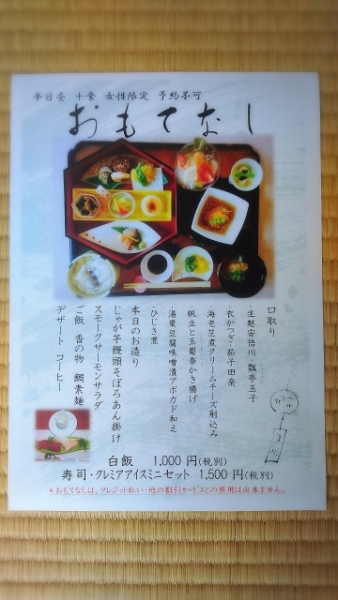 平日昼 十食 女性限定 予約不可
おもてなし
口取り
・生麩安倍川・瓢亭玉子
・衣かつぎ・茄子田楽
・海老芝煮クリームチーズ射込み
・帆立と玉蜀黍かき揚げ
・湯葉豆腐味噌漬アボカド和え
・ひじき煮
本日のお造り
じゃが芋饅頭そぼろあん掛け
スモークサーモンサラダ
ご飯 香の物 鯛素麺
デザート コーヒー
白飯 1,000円(税別)
寿司・クレミアアイスミニセット 1,500円(税別)
*おもてなしは、クレジット払い・他の割引サービスとの併用は出来ません。